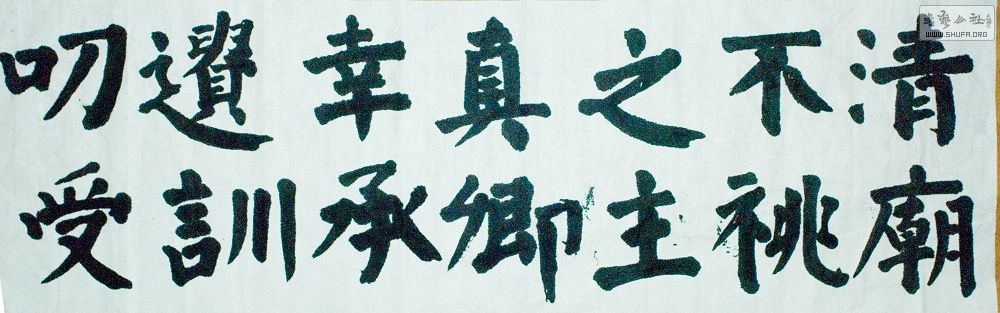 清廟
不祧
之主
真卿
幸承
遺訓
叨受
書藝公社
WWW.SHUFA.ORG